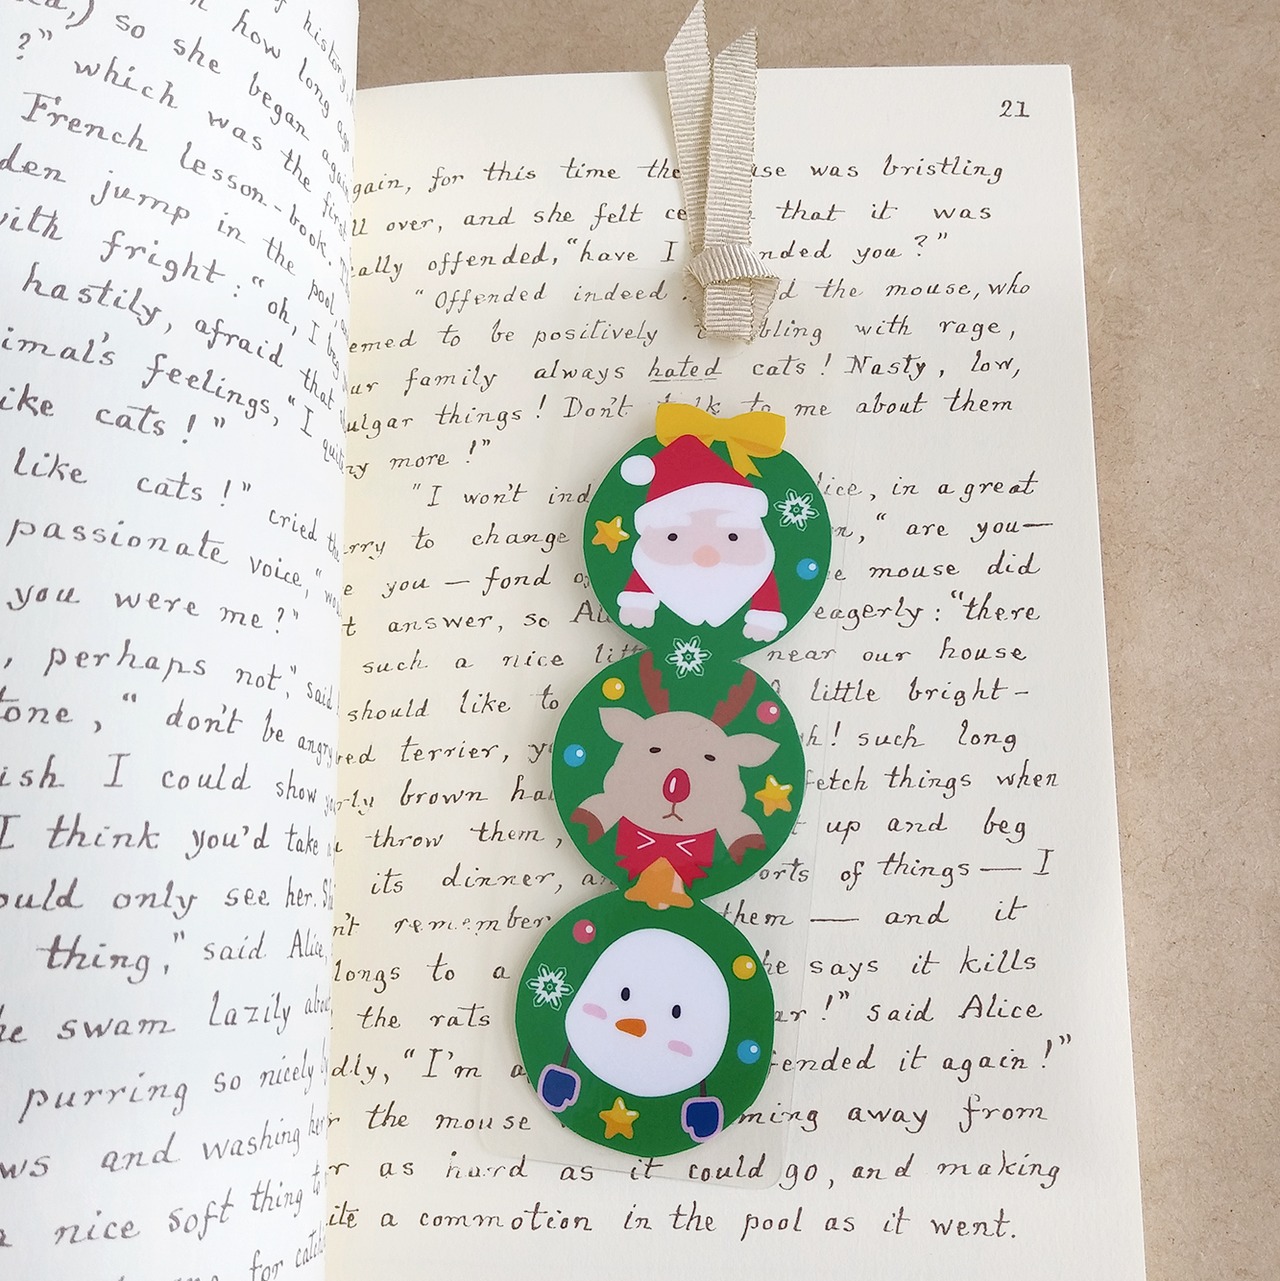 so she began again
?" which was the first
French lesson-book.
den jump in the pool,
with fright: "oh, I beg
hastily, afraid that
imal's feelings, "I quite
ike cats!"
like cats!" cried the
passionate voice,
you were me?"
, perhaps not," said
tone, "don't be angry
ish I could show
I think you'd take
ould only see her.
thing," said Alice,
he swam lazily about
purring so nicely
ws and washing her
nice soft thing to
for
21
gain, for this time the use was bristling
ll over, and she felt ce n that it was
eally offended, "have I nded you?"
"Offended indeed d the mouse, who
emed to be positively bling with rage,
ur family always hated cats! Nasty, low,
ulgar things! Don't lk to me about them
ny more!"
"I won't ind lice, in a great
rry to change n, "are you—
e you — fond o e mouse did
t answer, so Ali eagerly: "there
such a nice litt near our house
should like to little bright-
ed terrier, y h! such long
rly brown ha fetch things when
throw them, t up and beg
its dinner, a orts of things — I
n't remember them — and it
longs to a he says it kills
the rats ar!" said Alice
dly, "I'm a fended it again!"
the mouse ming away from
r as hard as it could go, and making
ite a commotion in the pool as it went.